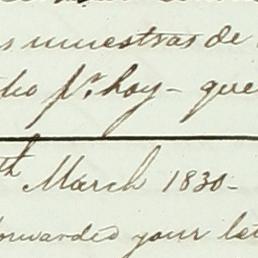 s muestras de
ho pr. hoy - que
th March 1830 -
forwarded your let